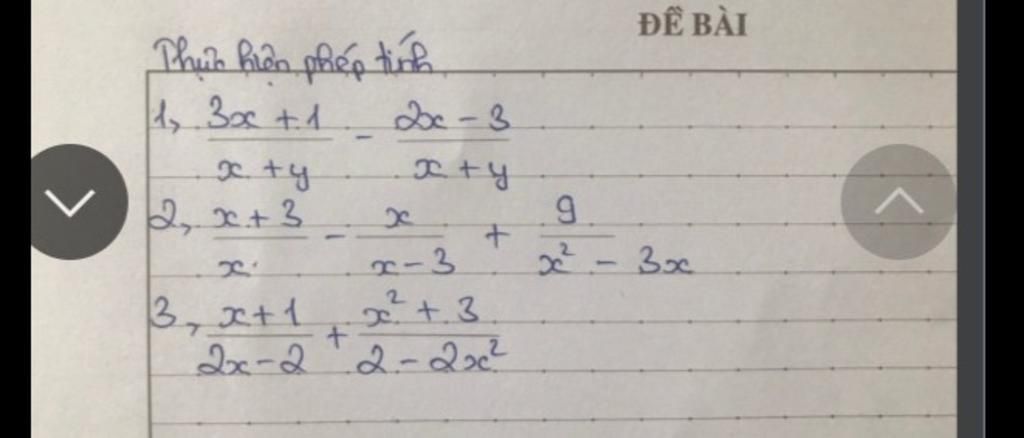 ĐỀ BÀI
Thực hiện phép tính
1, \frac{3x + 1}{x + y} - \frac{2x - 3}{x + y}
2, \frac{x + 3}{x} - \frac{x}{x - 3} + \frac{9}{x² - 3x}
3, \frac{x + 1}{2x - 2} + \frac{x² + 3}{2 - 2x²}